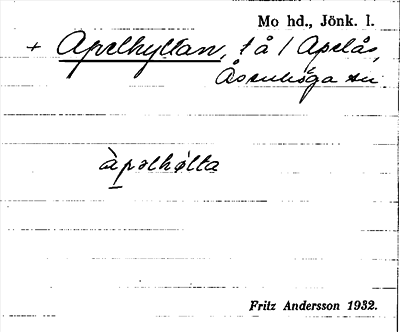 Mo hd., Jönk. l.
+ Apelhyltan, t å / Apelås,
Åsenhöga sn.
àpəlhəlta
Fritz Andersson 1932.